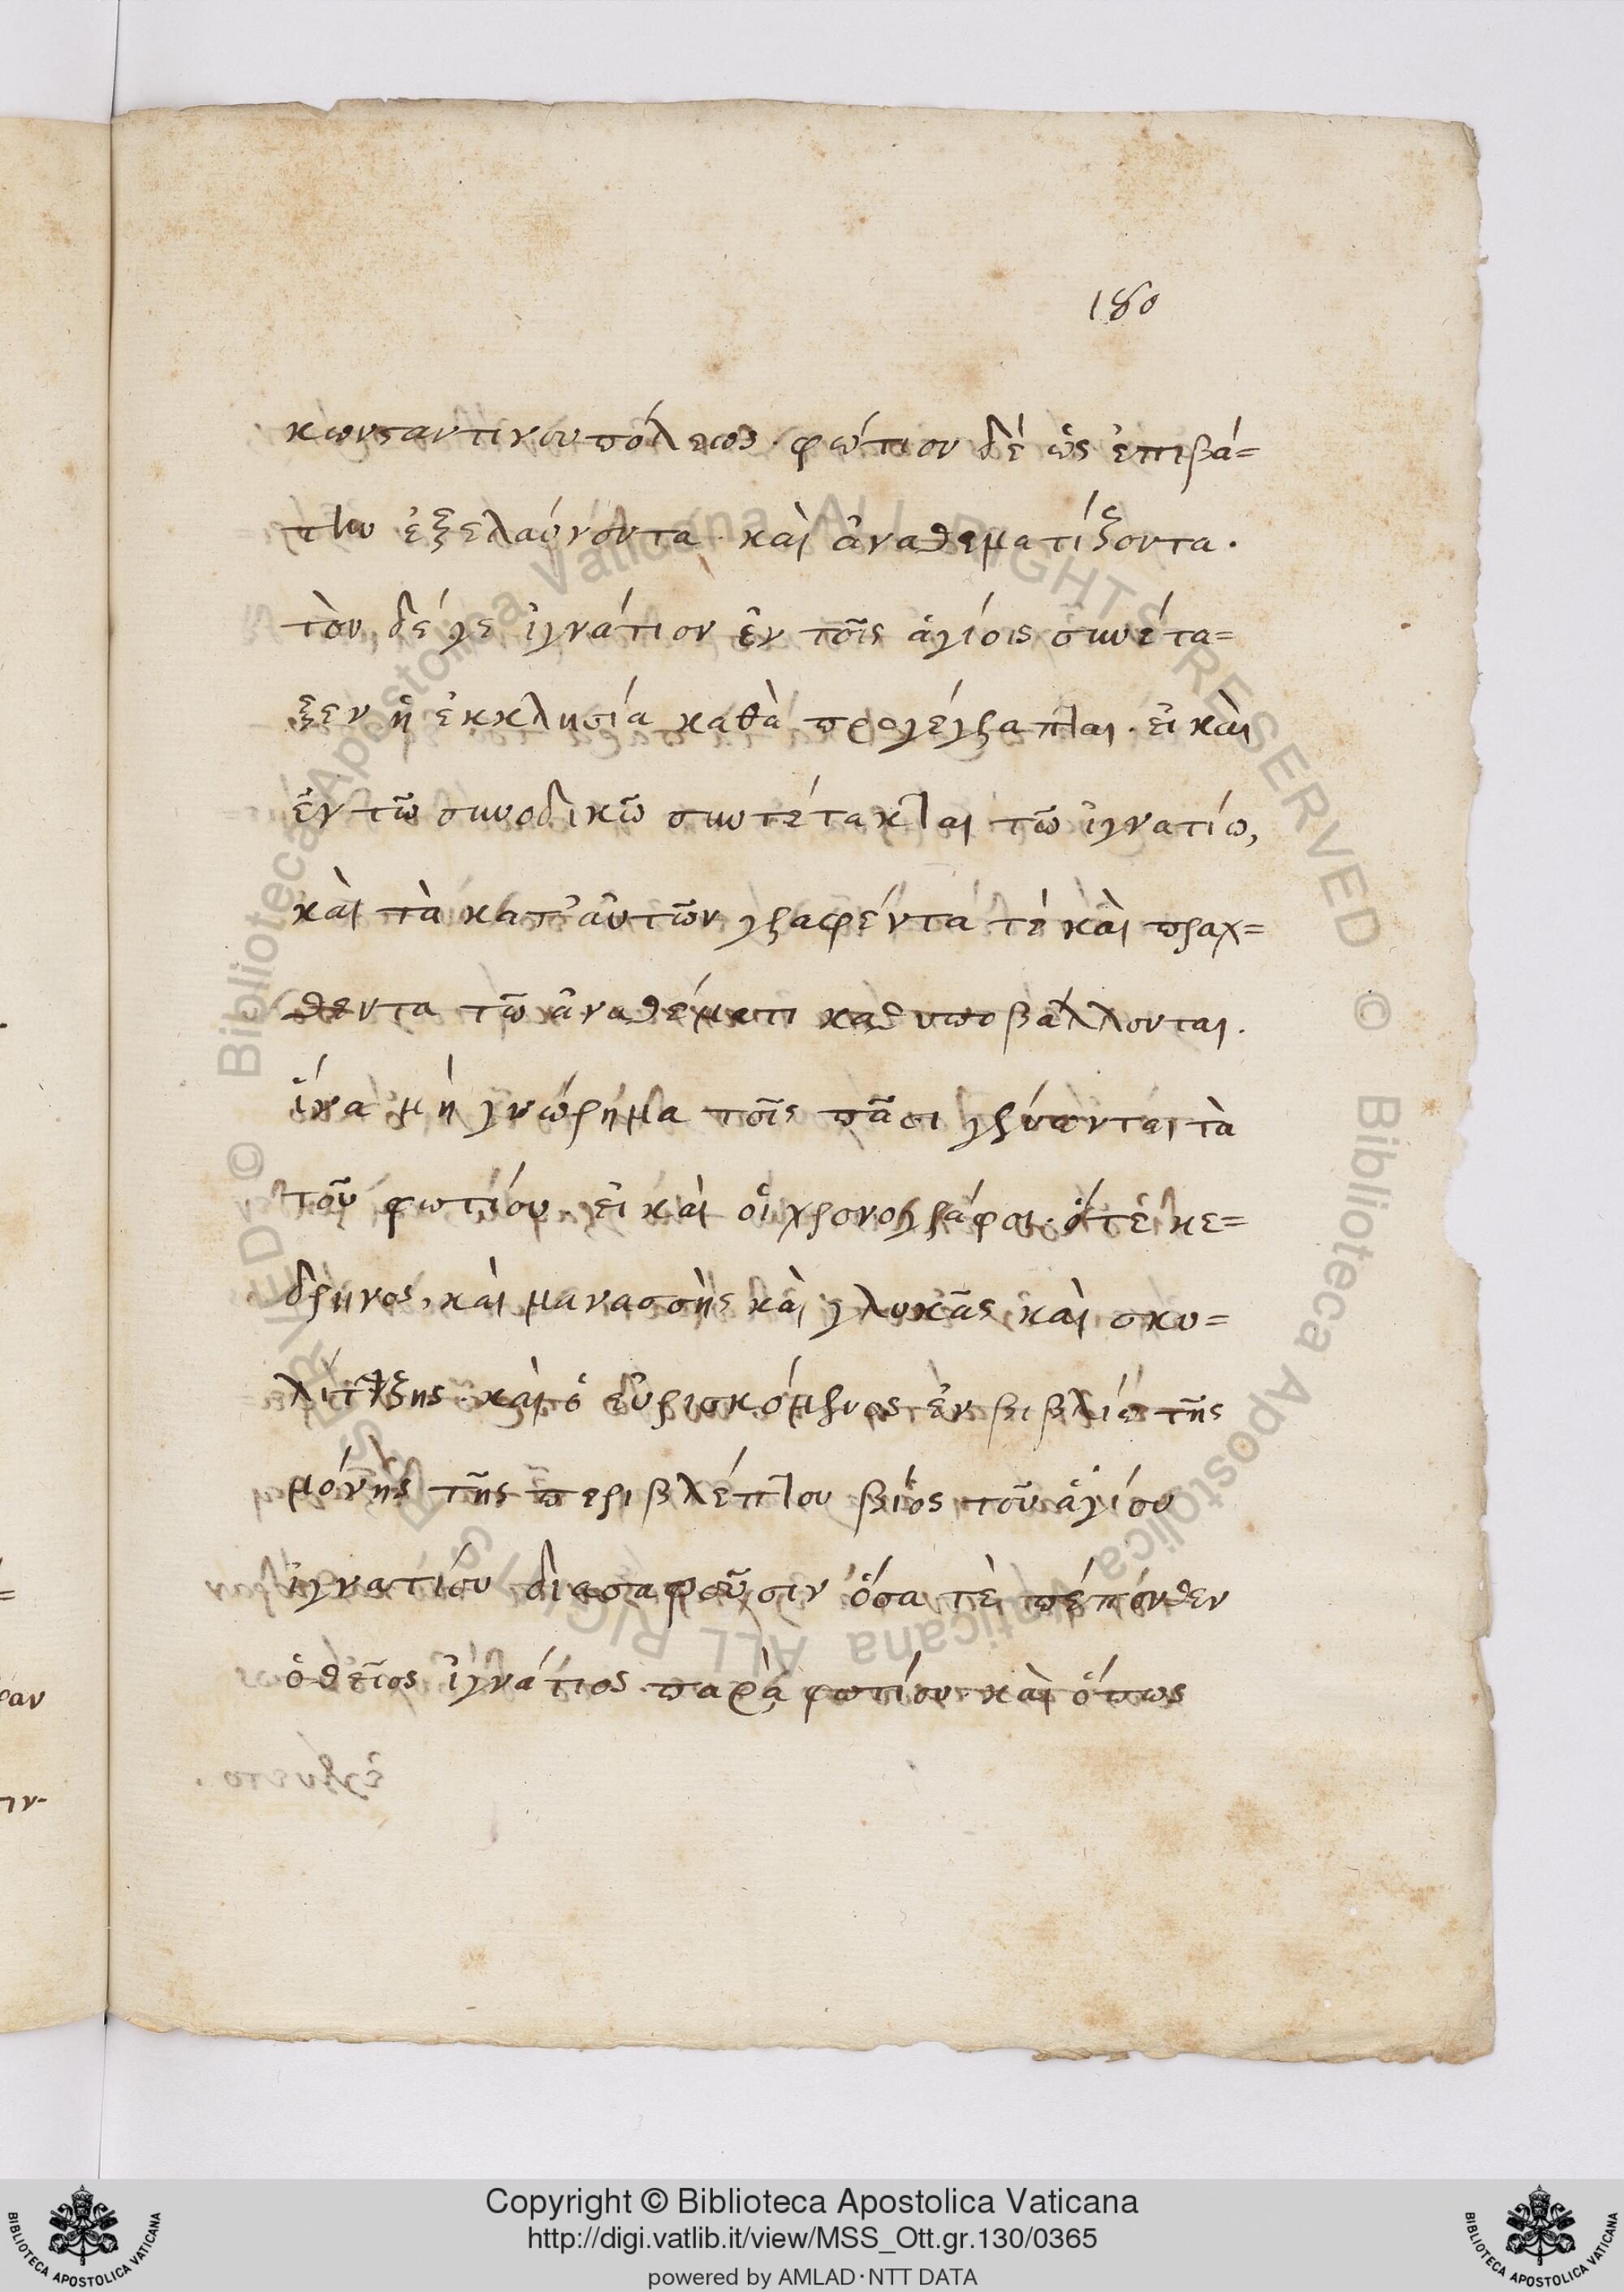 180
κωνσταντινουπόλεως · φώτιον δὲ ὡς ἐπιβά=
την ἐξελαύνοντα · καὶ ἀναθεματίζοντα ·
τὸν δέ γε ἰγνάτιον ἐν τοῖς ἁγίοις συνέτα=
ξεν ἡ ἐκκλησία καθὰ προγέγραπται · εἰ καὶ
ἐν τῶ συνοδικῶ συντέτακται τῶ ἰγνατίω,
καὶ τὰ κατ' αὐτῶν γραφέντα τὲ καὶ πραχ=
θεντα τῶ ἀναθέματι καθυποβάλλονται ·
ἵνα μή γνώρημα τοῖς πᾶσι γένωνται τὰ
τοῦ φωτίου · εἰ καὶ οἱ χρονογράφοι · ὅ τὲ κε=
δρηνος, καὶ μανασσὴς καὶ γλυκᾶς καὶ σκυ=
λίτζης · καὶ ὁ εὑρισκόμενος ἐν βιβλίω τῆς
μόνης τῆς περιβλέπτου βίος τοῦ ἁγίου
ἰγνατίου διασαφοῦσιν ὅσα τὲ πέπονθεν
ὁ θεῖος ἰγνάτιος παρὰ φωτίου · καὶ ὅπως
Copyright © Biblioteca Apostolica Vaticana
http://digi.vatlib.it/view/MSS_Ott.gr.130/0365
powered by AMLAD·NTT DATA